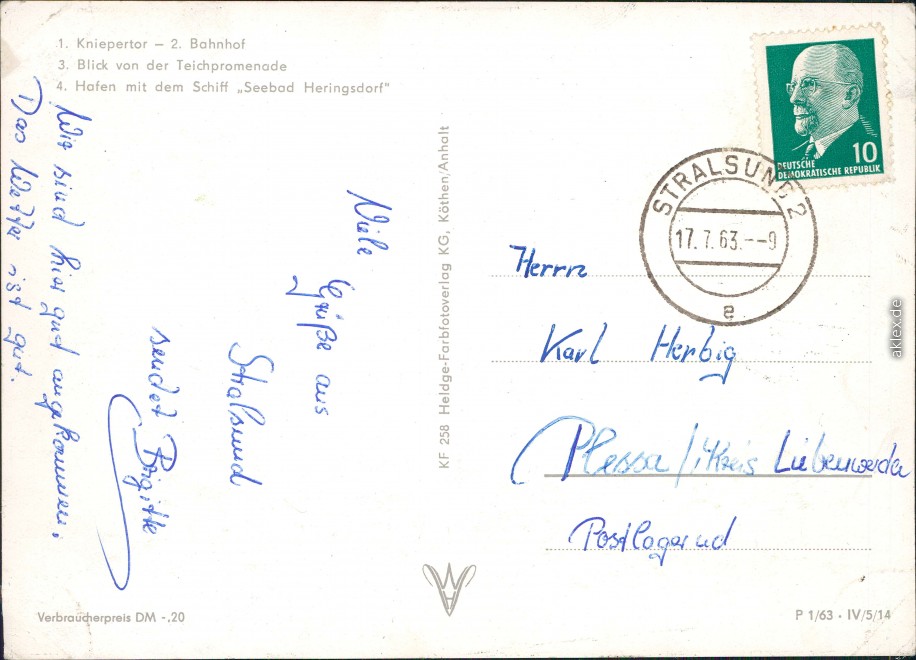 1. Kniepertor – 2. Bahnhof
3. Blick von der Teichpromenade
4. Hafen mit dem Schiff „Seebad Heringsdorf"
Viele
Grüße aus
Stralsund
sendet Brigitte
Wir sind hier gut angekommen.
Das Wetter ist gut.
Verbraucherpreis DM -,20
KF 258 Heldge-Farbfotoverlag KG, Köthen/Anhalt
DEUTSCHE
DEMOKRATISCHE REPUBLIK
10
STRALSUND 2
17.7.63.--9
e
Herrn
Karl Herbig
Plessa / Kreis Liebenwerda
Postlagernd
P 1/63 · IV/5/14
aklex.de